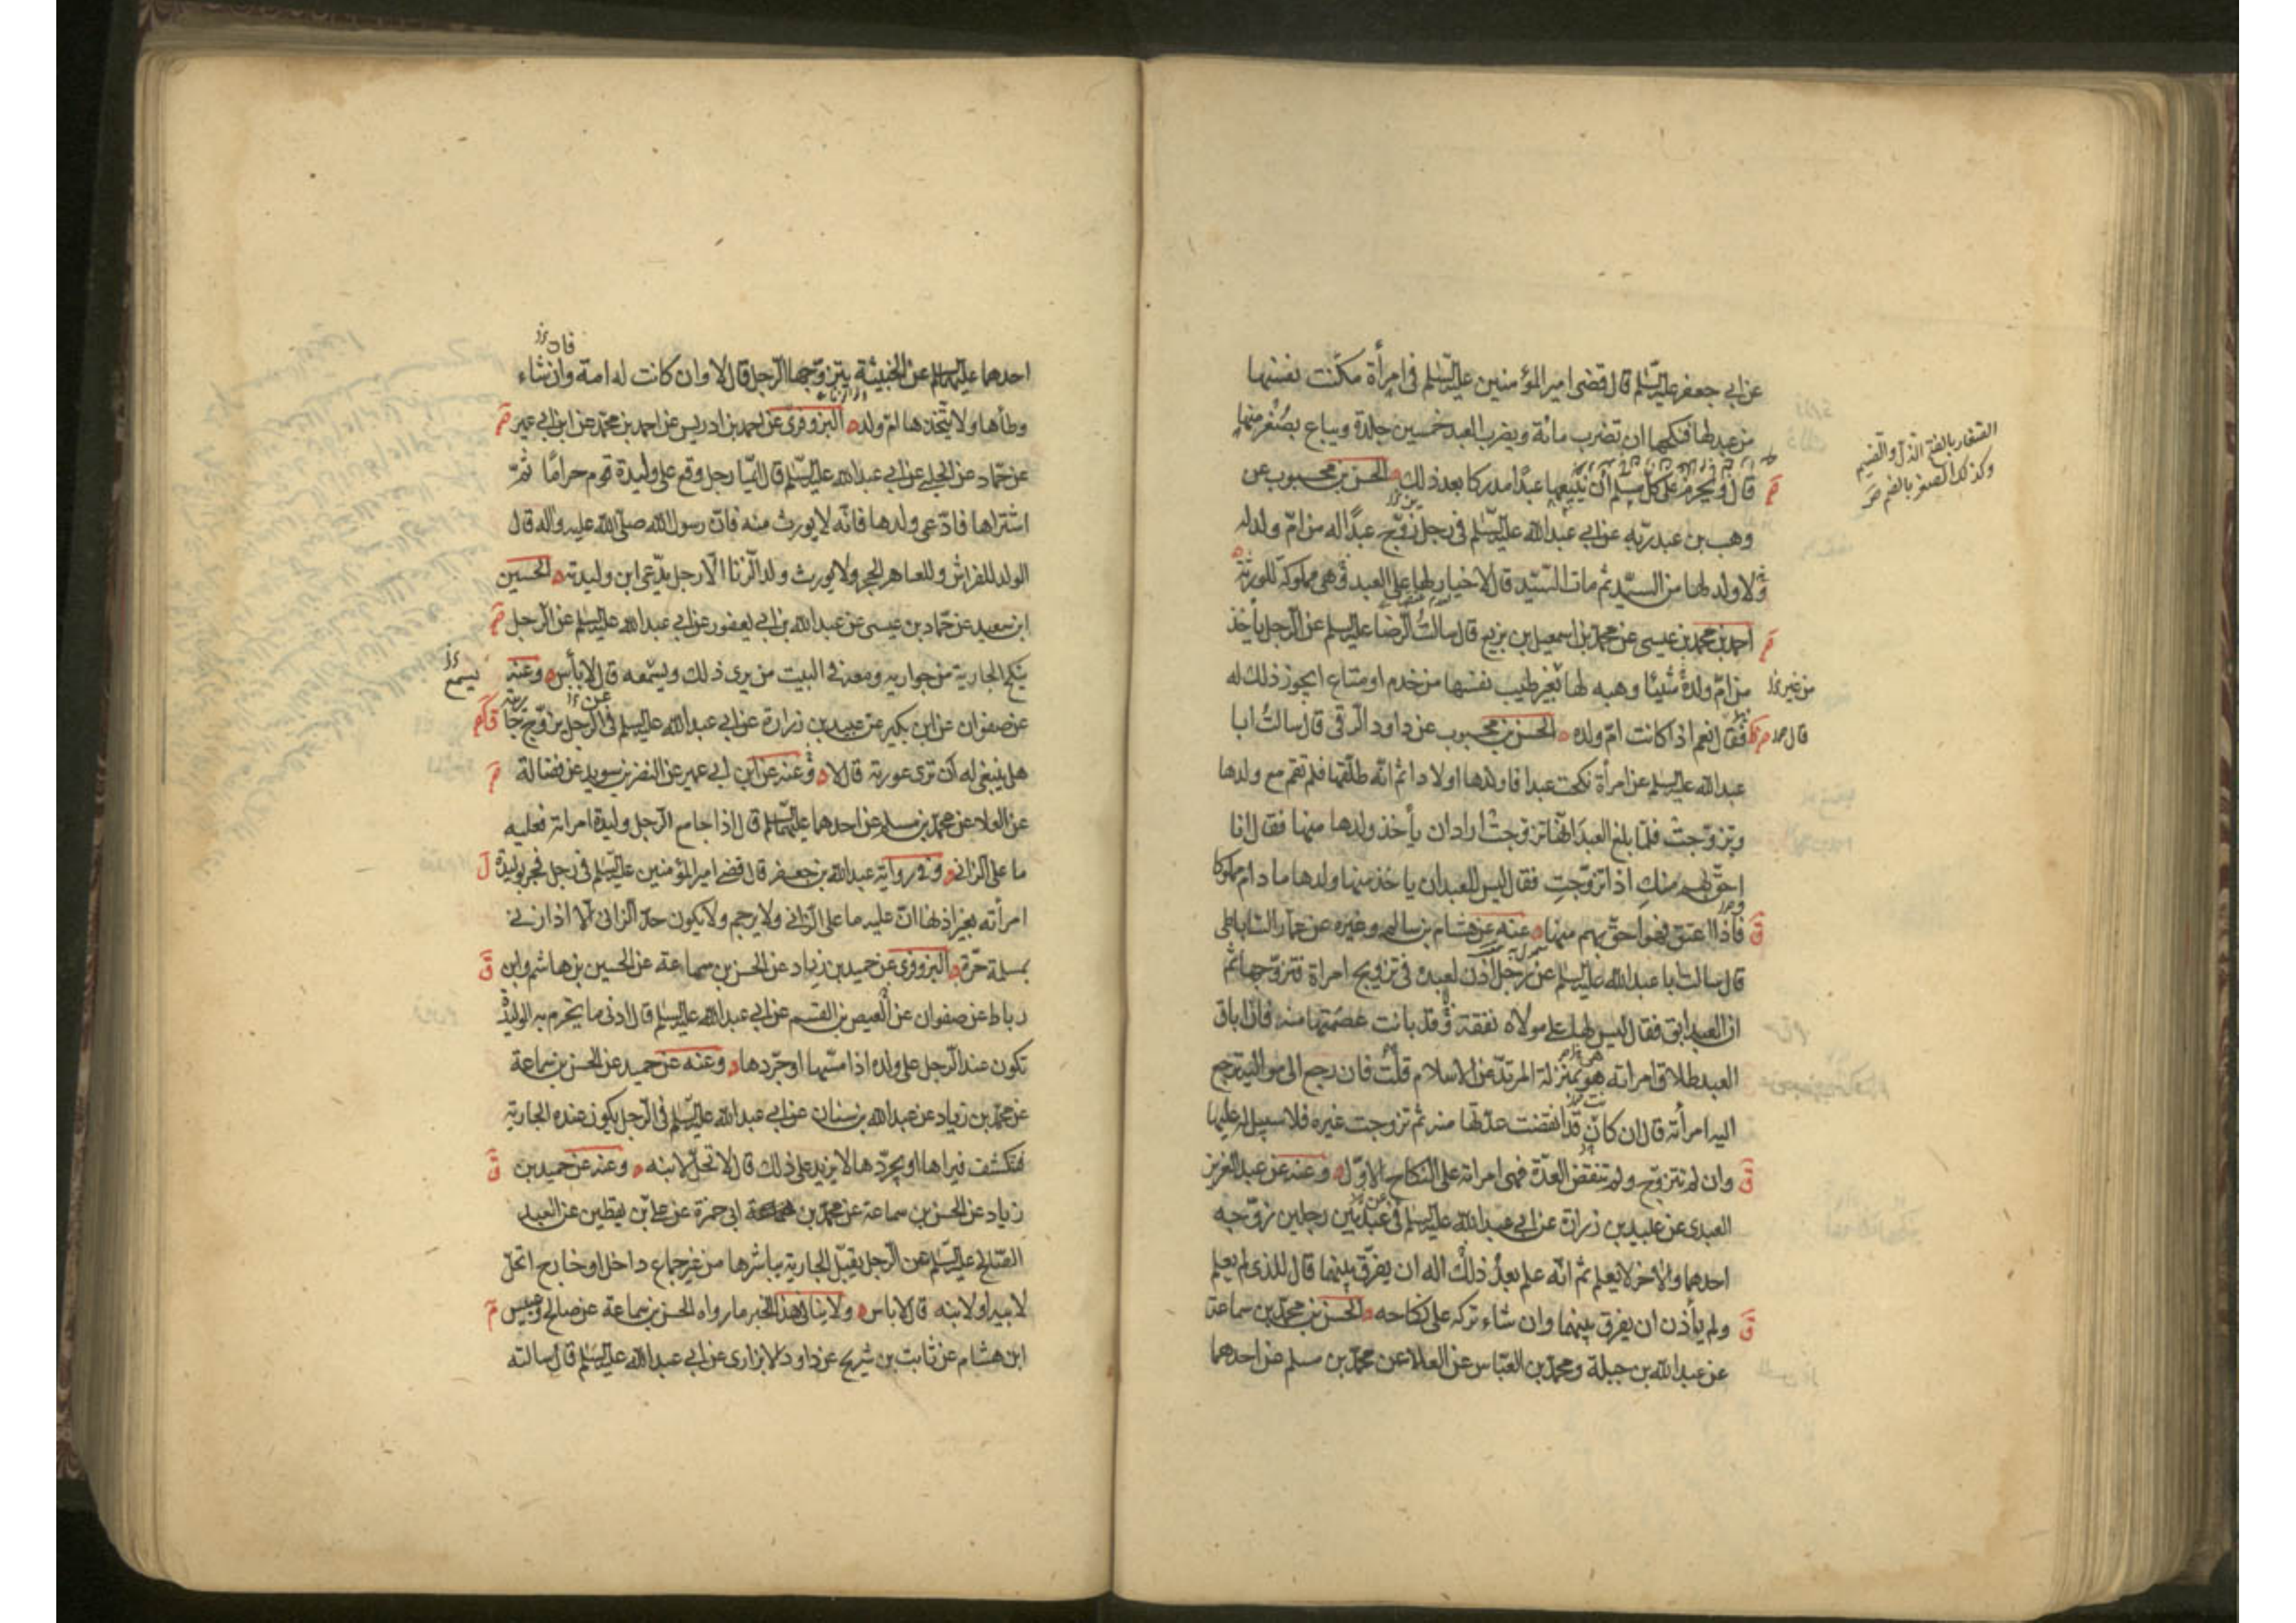 عن ابي جعفر عليه السلم قال قضى امير المؤمنين عليه السلم في امرأة مكّنت نفسها
من عبد لها فنكحها ان تضرب مائة ويضرب العبد خمسين جلدة ويباع بصُغْر منها
قال ويحرم على كل مسلم ان يبيعها عبدًا مدركا بعد ذلك الحسن بن محبوب عن
الصغار بالفتح الذل والضيم
وكذلك الصغر بالضم
وهب بن عبد ربّه عن ابي عبد الله عليه السّلم في رجل زوّج عبدًا له من امّ ولد له
ولا ولد لها من السيّد ثم مات السّيّد قال لا خيار لها على العبد هي مملوكة للورثة
احمد بن محمد بن عيسى عن محمد بن اسمعيل بن بزيع قال سالتُ الرّضا عليه السلم عن الرّجل يأخذ
من امّ ولده شيئًا وهبه لها بغير طيب نفسها من خدم او متاع ايجوز ذلك له
من غير
فقال نعم اذا كانت امّ ولده الحسن بن محبوب عن داود الرقي قال سالتُ ابا
عبد الله عليه السلم عن امرأة نكحت عبدا فاولدها اولادا ثم انّه طلّقها فلم تقم مع ولدها
وتزوّجتْ فلمّا بلغ العبدَ انّها تزوجتْ اراد ان يأخذ ولدها منها فقال انا
احقّ بهم منكِ اذا تزوّجتِ فقال ليس للعبد ان ياخذ منها ولدها ما دام مملوكا
فاذا اعتق فهو احقّ بهم منها عنه عن هشام بن سالم وغيره عن عمّار الساباطي
قال سالت ابا عبد الله عليه السلم عن رجل اذن لعبده في تزويج امراة فتزوّجها ثم
ان العبد ابق فقال ليس لها على مولاه نفقة وقد بانت عصمتها منه فان اباق
العبد طلاق امراته هو بمنزلة المرتدّ عن الاسلام قلتُ فان رجع الى مواليه ترجع
اليه امرأته قال ان كان قد انقضت عدّتها منه ثم تزوجت غيره فلا سبيل له عليها
وان لم تتزوّج ولم تنقض العدّة فهي امراته على النكاح الاوّل وعنه عن عبد العزيز
العبدي عن عبيد بن زرارة عن ابي عبد الله عليه السلم في عبد بين رجلين زوّجه
احدهما والاخر لا يعلم ثم انّه علم بعدُ ذلك اله ان يفرّق بينهما قال للذي لم يعلم
ولم يأذن ان يفرق بينهما وان شاء تركه على نكاحه الحسن بن محمّد بن سماعة
عن عبد الله بن جبلة ومحمّد بن العبّاس عن العلا عن محمّد بن مسلم عن احدهما
فان
احدهما عليهما السلم عن الخبيثة يتزوّجها الرّجل قال لا وان كانت له امة وان شاء
وطأها ولا يتّخذها امّ ولد البزوفري عن احمد بن ادريس عن احمد بن محمّد عن ابن ابي عمير
عن حمّاد عن الحلبي عن ابي عبد الله عليه السّلم قال ايّما رجل وقع على وليدة قوم حرامًا ثمّ
اشتراها فادّعى ولدها فانّه لا يورث منه فانّ رسول الله صلّى الله عليه وآله قال
الولد للفراش وللعاهر الحجر ولا يورث ولد الزنا الّا رجل يدّعي ابن وليدته الحسين
ابن سعيد عن حمّاد بن عيسى عن عبد الله بن ابي يعفور عن ابي عبد الله عليه السلم عن الرّجل
ينكح الجارية من جواريه ومعه في البيت من يرى ذلك ويسمعه قال لا بأس وعنه
يسمع
عن صفوان عن ابن بكير عن عبيد بن زرارة عن ابي عبد الله عليه السلم في الرجل يزوّج جاريته
هل ينبغي له ان ترى عورته قال لا وعنه عن ابن ابي عمير عن النضر بن سويد عن فضالة
عن العلا عن محمّد بن مسلم عن احدهما عليهما السلم قال اذا جامع الرّجل وليدة امراته فعليه
ما على الزاني وفي رواية عبد الله بن جعفر قال قضى امير المؤمنين عليه السّلم في رجل فجر بوليدة
امرأته بغير اذنها انّ عليه ما على الزّاني ولا يرجم ولا يكون حدّ الزاني الّا اذا زنى
بمسلمة حرّة البزوفري عن حميد بن زياد عن الحسن بن سماعة عن الحسين بن هاشم وابن
رباط عن صفوان عن العيص بن القسم عن ابي عبد الله عليه السلم قال ادنى ما يحرم به الوليدة
تكون عند الرّجل على ولده اذا مسّها او جرّدها وعنه عن حميد عن الحسن بن سماعة
عن محمّد بن زياد عن عبد الله بن سنان عن ابي عبد الله عليه السلم في الرّجل يكون عنده الجارية
فتكشف فيراها او يجرّدها لا يزيد على ذلك قال لا تحلّ لابنه وعنه عن حميد بن
زياد عن الحسن بن سماعة عن محمّد بن ابي حمزة عن علي بن يقطين عن العبد
الصّالح عليه السّلم عن الرّجل يقبّل الجارية يباشرها من غير جماع داخل او خارج اتحلّ
لابيه او لابنه قال لا باس ولا ينافي هذا الخبر ما رواه الحسن بن سماعة عن صالح وعبيس
ابن هشام عن ثابت بن شريح عن داود الابزاري عن ابي عبد الله عليه السّلم قال سالته